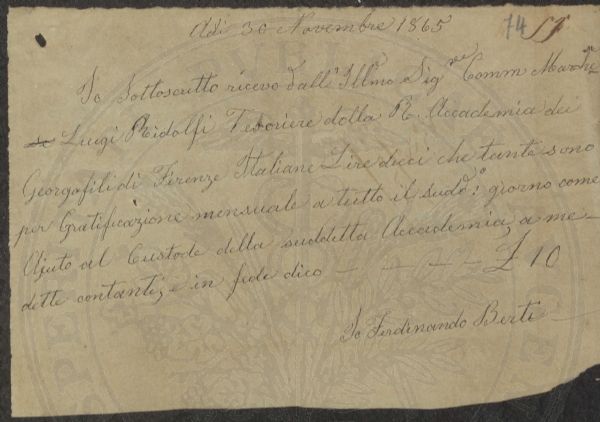 Adi 30 Novembre 1865 74
Io Sottoscritto ricevo dall' Ill.mo Sig.re Comm March.e
Luigi Ridolfi Tesoriere della R. Accademia dei
Georgofili di Firenze Italiane Lire dieci che tante sono
per Gratificazione mensuale a tutto il sudd.o giorno come
Ajuto al Custode della suddetta Accademia, a me
dette contanti, e in fede dico — — — — £ 10
Io Ferdinando Berti